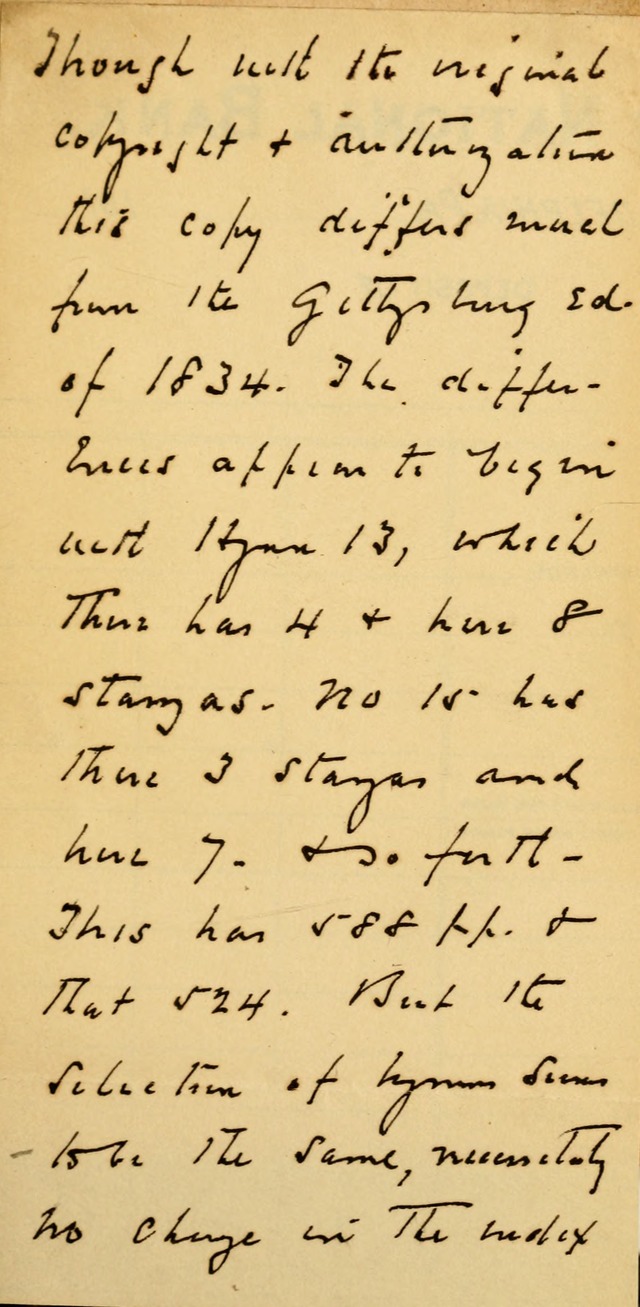 Though with the original
copyright + authorization
this copy differs much
from the Gettysburg Ed.
of 1834. The differ-
ences appear to begin
with Hymn 13, which
there has 4 + here 8
stanzas. No 15 has
there 3 stanzas and
here 7. + so forth -
This has 588 pp. +
that 524. But the
selection of hymns seems
to be the same, necessitating
no change in the index